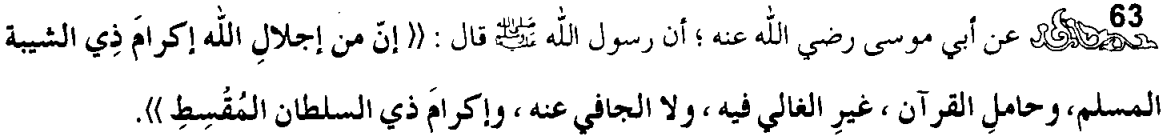 63 عن أبي موسى رضي الله عنه ؛ أن رسول الله ﷺ قال : (( إنّ من إجلالِ اللّه إكرامَ ذِي الشيبة
المسلم، وحاملِ القرآن ، غيرِ الغالي فيه ، ولا الجافي عنه ، وإكرامَ ذي السلطان المُقْسِطِ )).